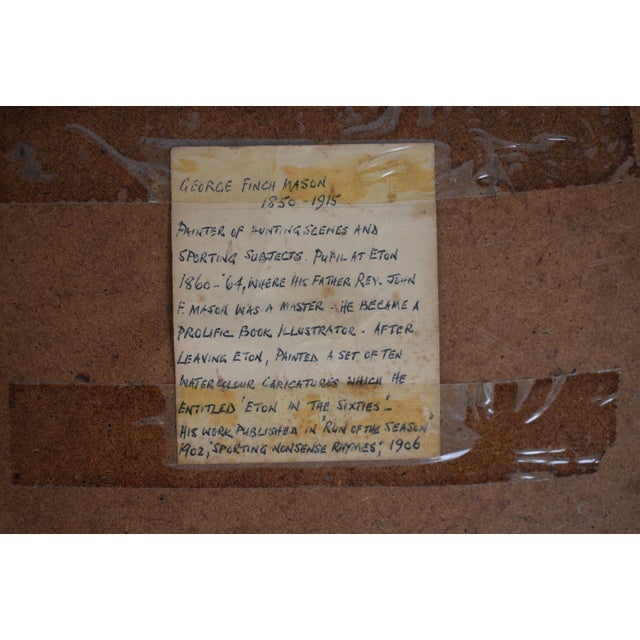 GEORGE FINCH MASON
1850-1915
PAINTER OF HUNTING SCENES AND
SPORTING SUBJECTS. PUPIL AT ETON
1860-'64, WHERE HIS FATHER REV. JOHN
F. MASON WAS A MASTER. HE BECAME A
PROLIFIC BOOK ILLUSTRATOR. AFTER
LEAVING ETON, PAINTED A SET OF TEN
WATERCOLOUR CARICATURES WHICH HE
ENTITLED 'ETON IN THE SIXTIES'-
HIS WORK PUBLISHED IN 'RUN OF THE SEASON
1902, 'SPORTING NONSENSE RHYMES', 1906